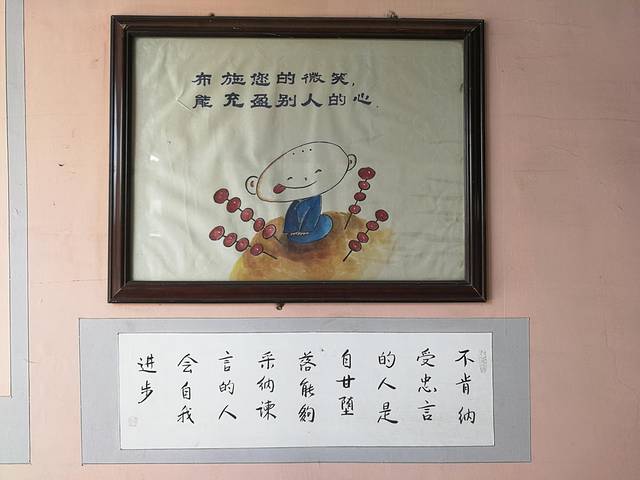 布施您的微笑,
能充盈别人的心
不肯纳
受忠言
的人是
自甘堕
落能夠
采纳谏
言的人
会自我
进步